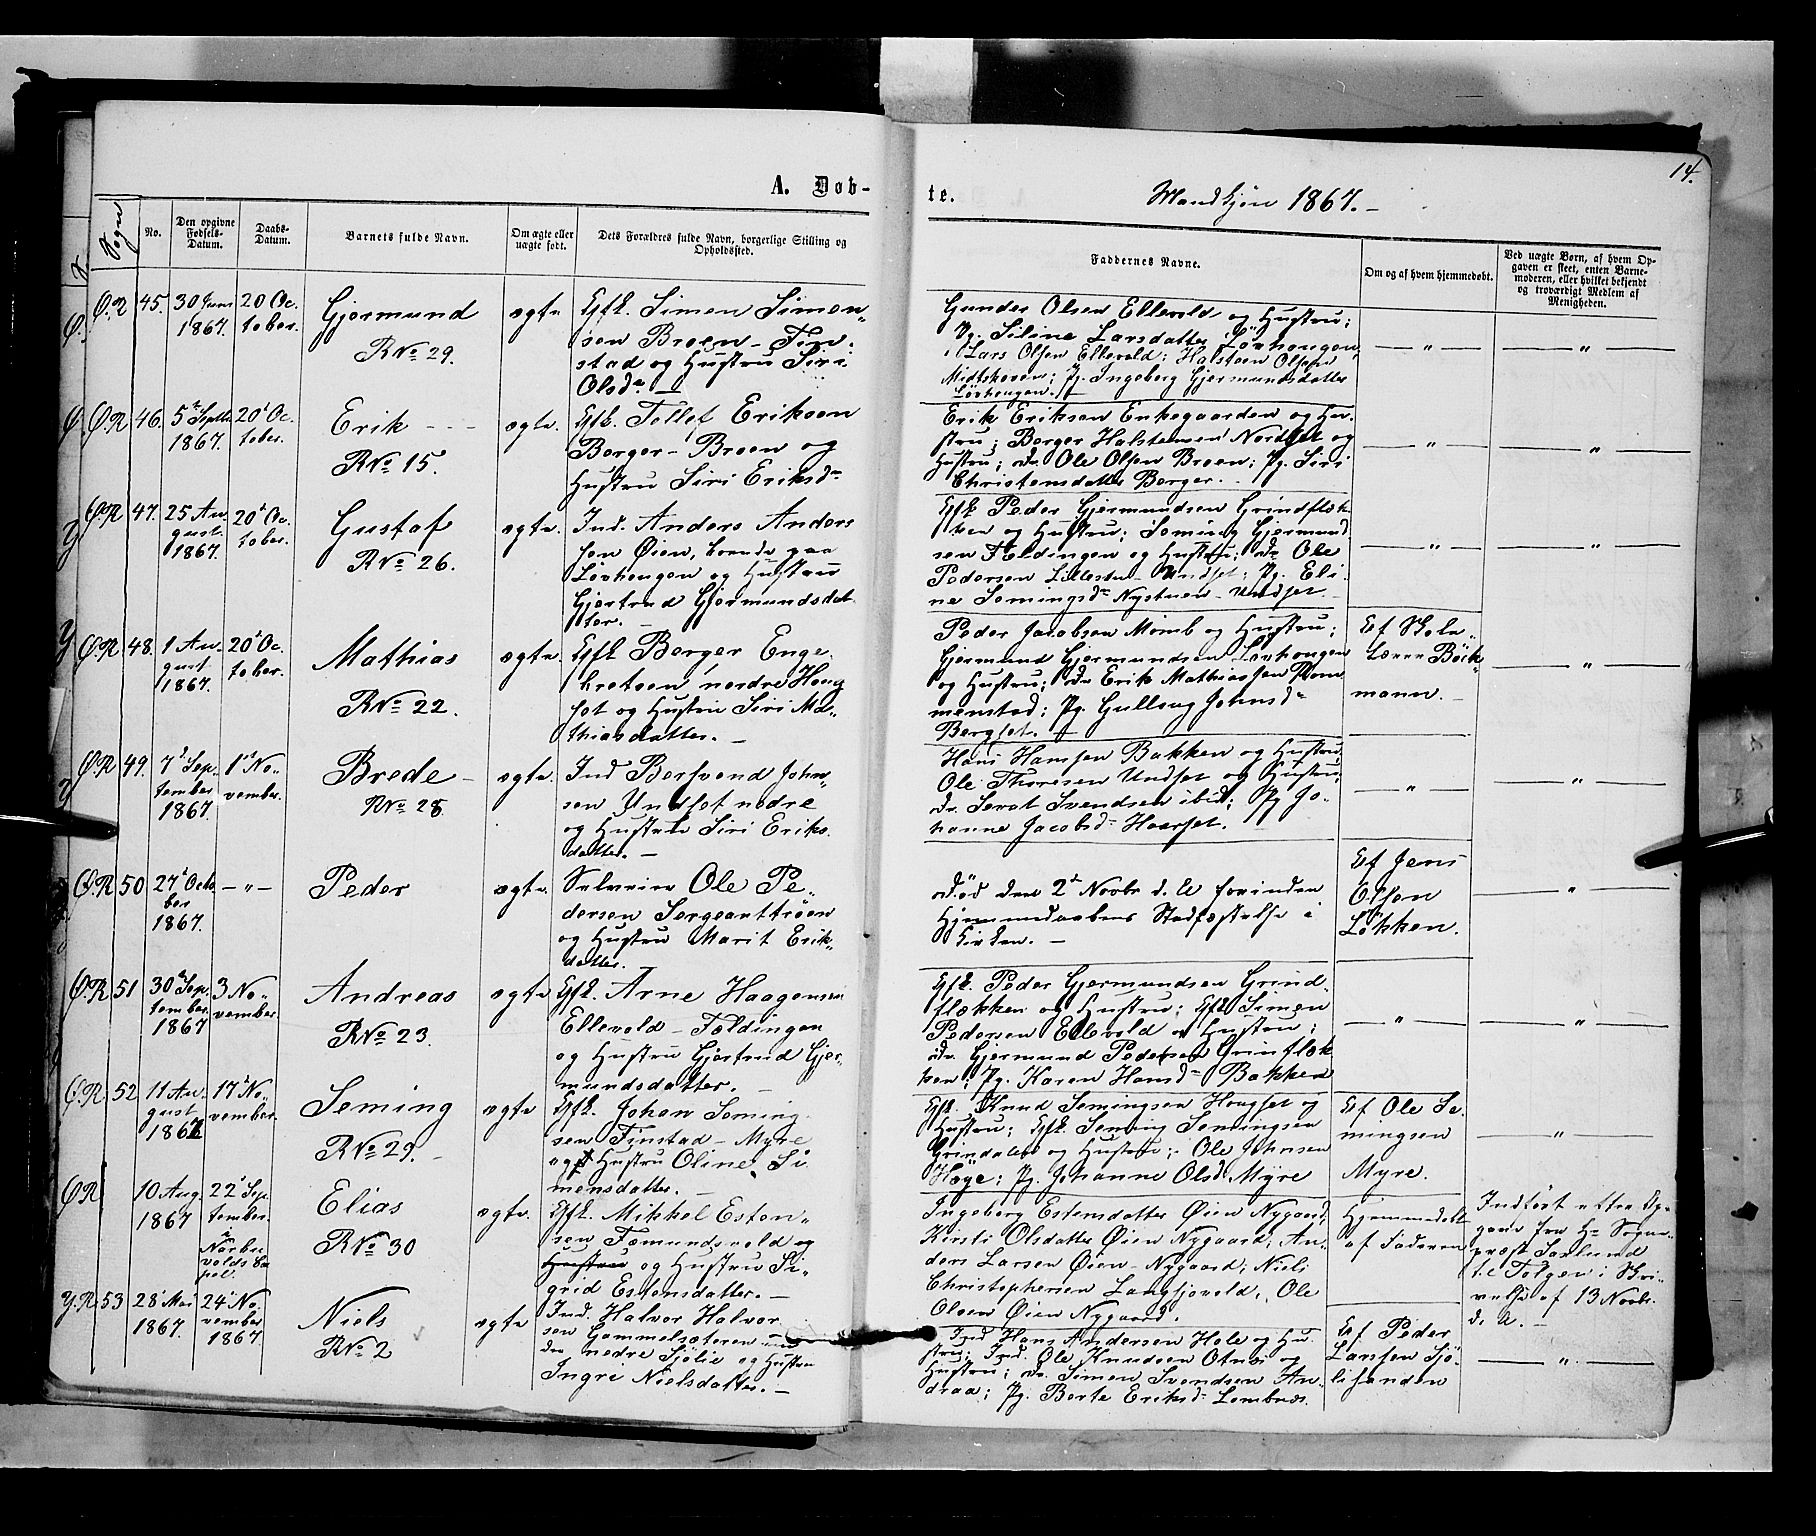 14.
A. Døb-
te.
Mandkjøn 1867. -
Sogn
No.
Den opgivne Fødsels-Datum.
Daabs-Datum.
Barnets fulde Navn.
Om ægte eller uægte født.
Dets Forældres fulde Navn, borgerlige Stilling og Opholdssted.
Faddernes Navne.
Om og af hvem hjemmedøbt.
Ved uægte Børn, af hvem Op-
gaven er skeet, enten Barne-
moderen, eller hvilket bekjendt
og troværdigt Medlem af
Menigheden.
Ø.R 45. 30 Juni 1867. 20 Oc. tober.
Gjermund
RNo 29.
ægte
Gfk. Simen Simen-
sen Broen - Fin-
stad og Hustru Siri
Olsdr -
Gunder Olsen Ellevold og Hustru;
Pg. Siline Larsdatter Løvhougen,
Lars Olsen Ellevold; Halsteen Olsen
Midtskoven; Pg. Ingeborg Gjermundsdatter
Løvhougen.
— " — — " —
Ø.R 46. 5 Septbr 1867. 20d Oc. tober.
Erik - - -
RNo 15.
ægte.
Gfk. Tollef Eriksen
Berger - Broen og
Hustru Siri Eriksdr
Erik Eriksen Enkegaarden og Hu-
stru; Berger Halstensen Nordset og
Hustru; Ole Olsen Broen; Pg. Siri
Christensdatter Berger.
— " — — " —
Ø.R 47. 25 Au. gust. 1867. 20d Oc. tober.
Gustaf
RNo 26.
ægte.
Ind. Anders Anders
sen Øien, boende paa
Løvhougen og Hustru
Gjertrud Gjermundsdat
ter. -
Gfk Peder Gjermundsen Grindflek
ken og Hustru; Seming Gjermund
sen Foldingen og Hustru; Ole
Pedersen Lillestu - Undset; Pg. Eli-
ne Semingsdr Nystuen - Undset
— " — — " —
Ø.R 48. 1 Au- gust 1867. 20d Oc. tober.
Mathias
RNo 22.
ægte.
Gfk Berger Enge
bretsen, nordre Houg
set og Hustru Siri Ma-
thiasdatter. -
Peder Jacobsen Momb og Hustru;
Gjermund Gjermundsen Løvhougen
og Hustru; Erik Mathiassen Rom
menstad; Pg. Gullaug Johnsdr
Bergset.
Af Skole-
lærer Böck-
mann. -
— " —
Ø.R 49. 7d Sep- tember 1867. 1d No- vember.
Brede -
RNo 28.
ægte.
Ind Bersvend John-
sen Undset nedre
og Hustru Siri Eriks
datter. -
Hans Hansen Bakken og Hustru,
Ole Thoresen Undset og Hustru,
Svendsen ibid; Pg Jo-
hanne Jacobsdr Haarset.
— " — — " —
Ø.R 50 27d Octo- ber 1867. - " -
Peder
ægte.
Selveier Ole Pe-
dersen Sergeanttrøen
og Hustru Marit Erik-
datter.
Død den 2d Novbr d. A forinden
Hjemmedaabens Stadfæstelse i
Kirken. -
Af Jens
Olsen
Løkken.
— " —
Ø.R 51 30 Sep. tember. 1867 3 No- vember.
Andreas
RNo 23.
ægte
Gfk. Arne Haagensen
Ellevold - Foldingen
og Hustru Gjertrud Gjer-
mundsdatter. -
Gfk. Peder Gjermundsen Grind-
flekken og Hustru; Gfk Simen
Pedersen Ellevold og Hustru;
Gjermund Pedersen Grinflek
ken; Pg. Karen Hansdr Bakken
— " — — " —
Ø.R 52 11 Au- gust 1867 17d No- vember.
Seming
RNo 29.-
ægte
Gfk. Johan Seming-
sen Finstad - Myre
og Hustru Oline Si
mensdatter. -
Gfk. Knud Semingsen Hougset og
Hustru; Gfk. Seming Semingsen
Grindalen og Hustru; Ole Johnsen
Høye; Pg. Johanne Olsd. Myre
Af Ole Se
mingsen
Myre.
— " —
Ø.R 10 Aug. 1867 22d Sep. tember. i Narbu- volds Ca- pel.
Elias
RNo 30
ægte.
Gfk. Mikkel Esten-
sen Fæmundsvold og
Hustru og Hustru Si-
grid Estensdatter. -
Ingeborg Estensdatter Øien Nygaard,
Kirsti Olsdatter Øien Nygaard; An-
ders Larsen Øien - Nygaard; Niels
Christophersen Langsjøvold, Ole
Olsen Øien Nygaard.
Hjemmedøbt
af Faderen
Indført efter Op-
gave fra Hr Sogne-
præst Saxlund
til Tolgen i Skri-
velse af 13 Novbr.
d. A. -
Y.R. 53 28d Mai 1867. 24d No- vember 1867
Niels
RNo 2
ægte
Ind. Halvor Halvor
sen Gammelsæteren un-
der nedre Sjølie og Hustru
Ingri Nielsdatter. -
Ind Hans Andersen Hole og Hu-
stru; Ind. Ole Knudsen Otnes og
Hustru; Simen Svendsen An-
draa; Pg. Berte Eriksdr Lombnæs.
Af Peder
Larssen Sjø-
lisanden
— " —